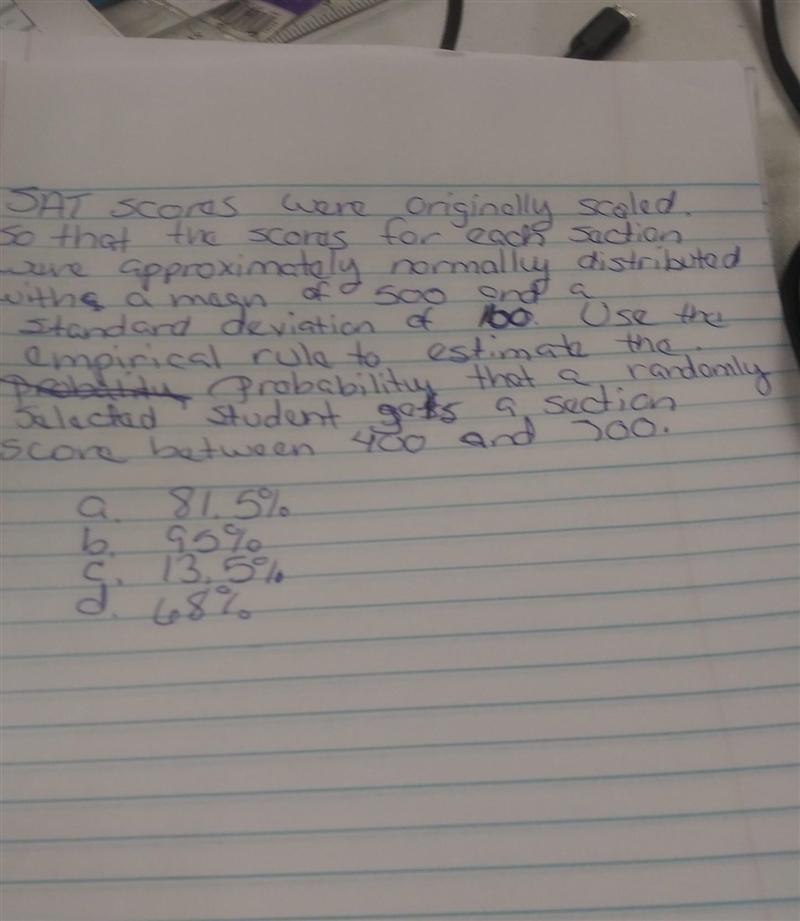 SAT scores were originally scaled.
so that the scores for each section
were approximately normally distributed
with a mean of 500 and a
standard deviation of 100. Use the
empirical rule to estimate the.
Probability Probability that a randomly
selected student gets a section
score between 400 and 700.
a. 81.5%
b. 95%
c. 13.5%
d. 68%